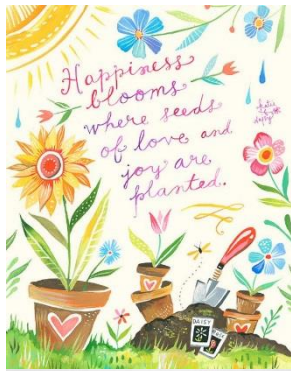 Happiness
blooms
where seeds
of love and
joy are
planted.
katie
daisy
DAISY